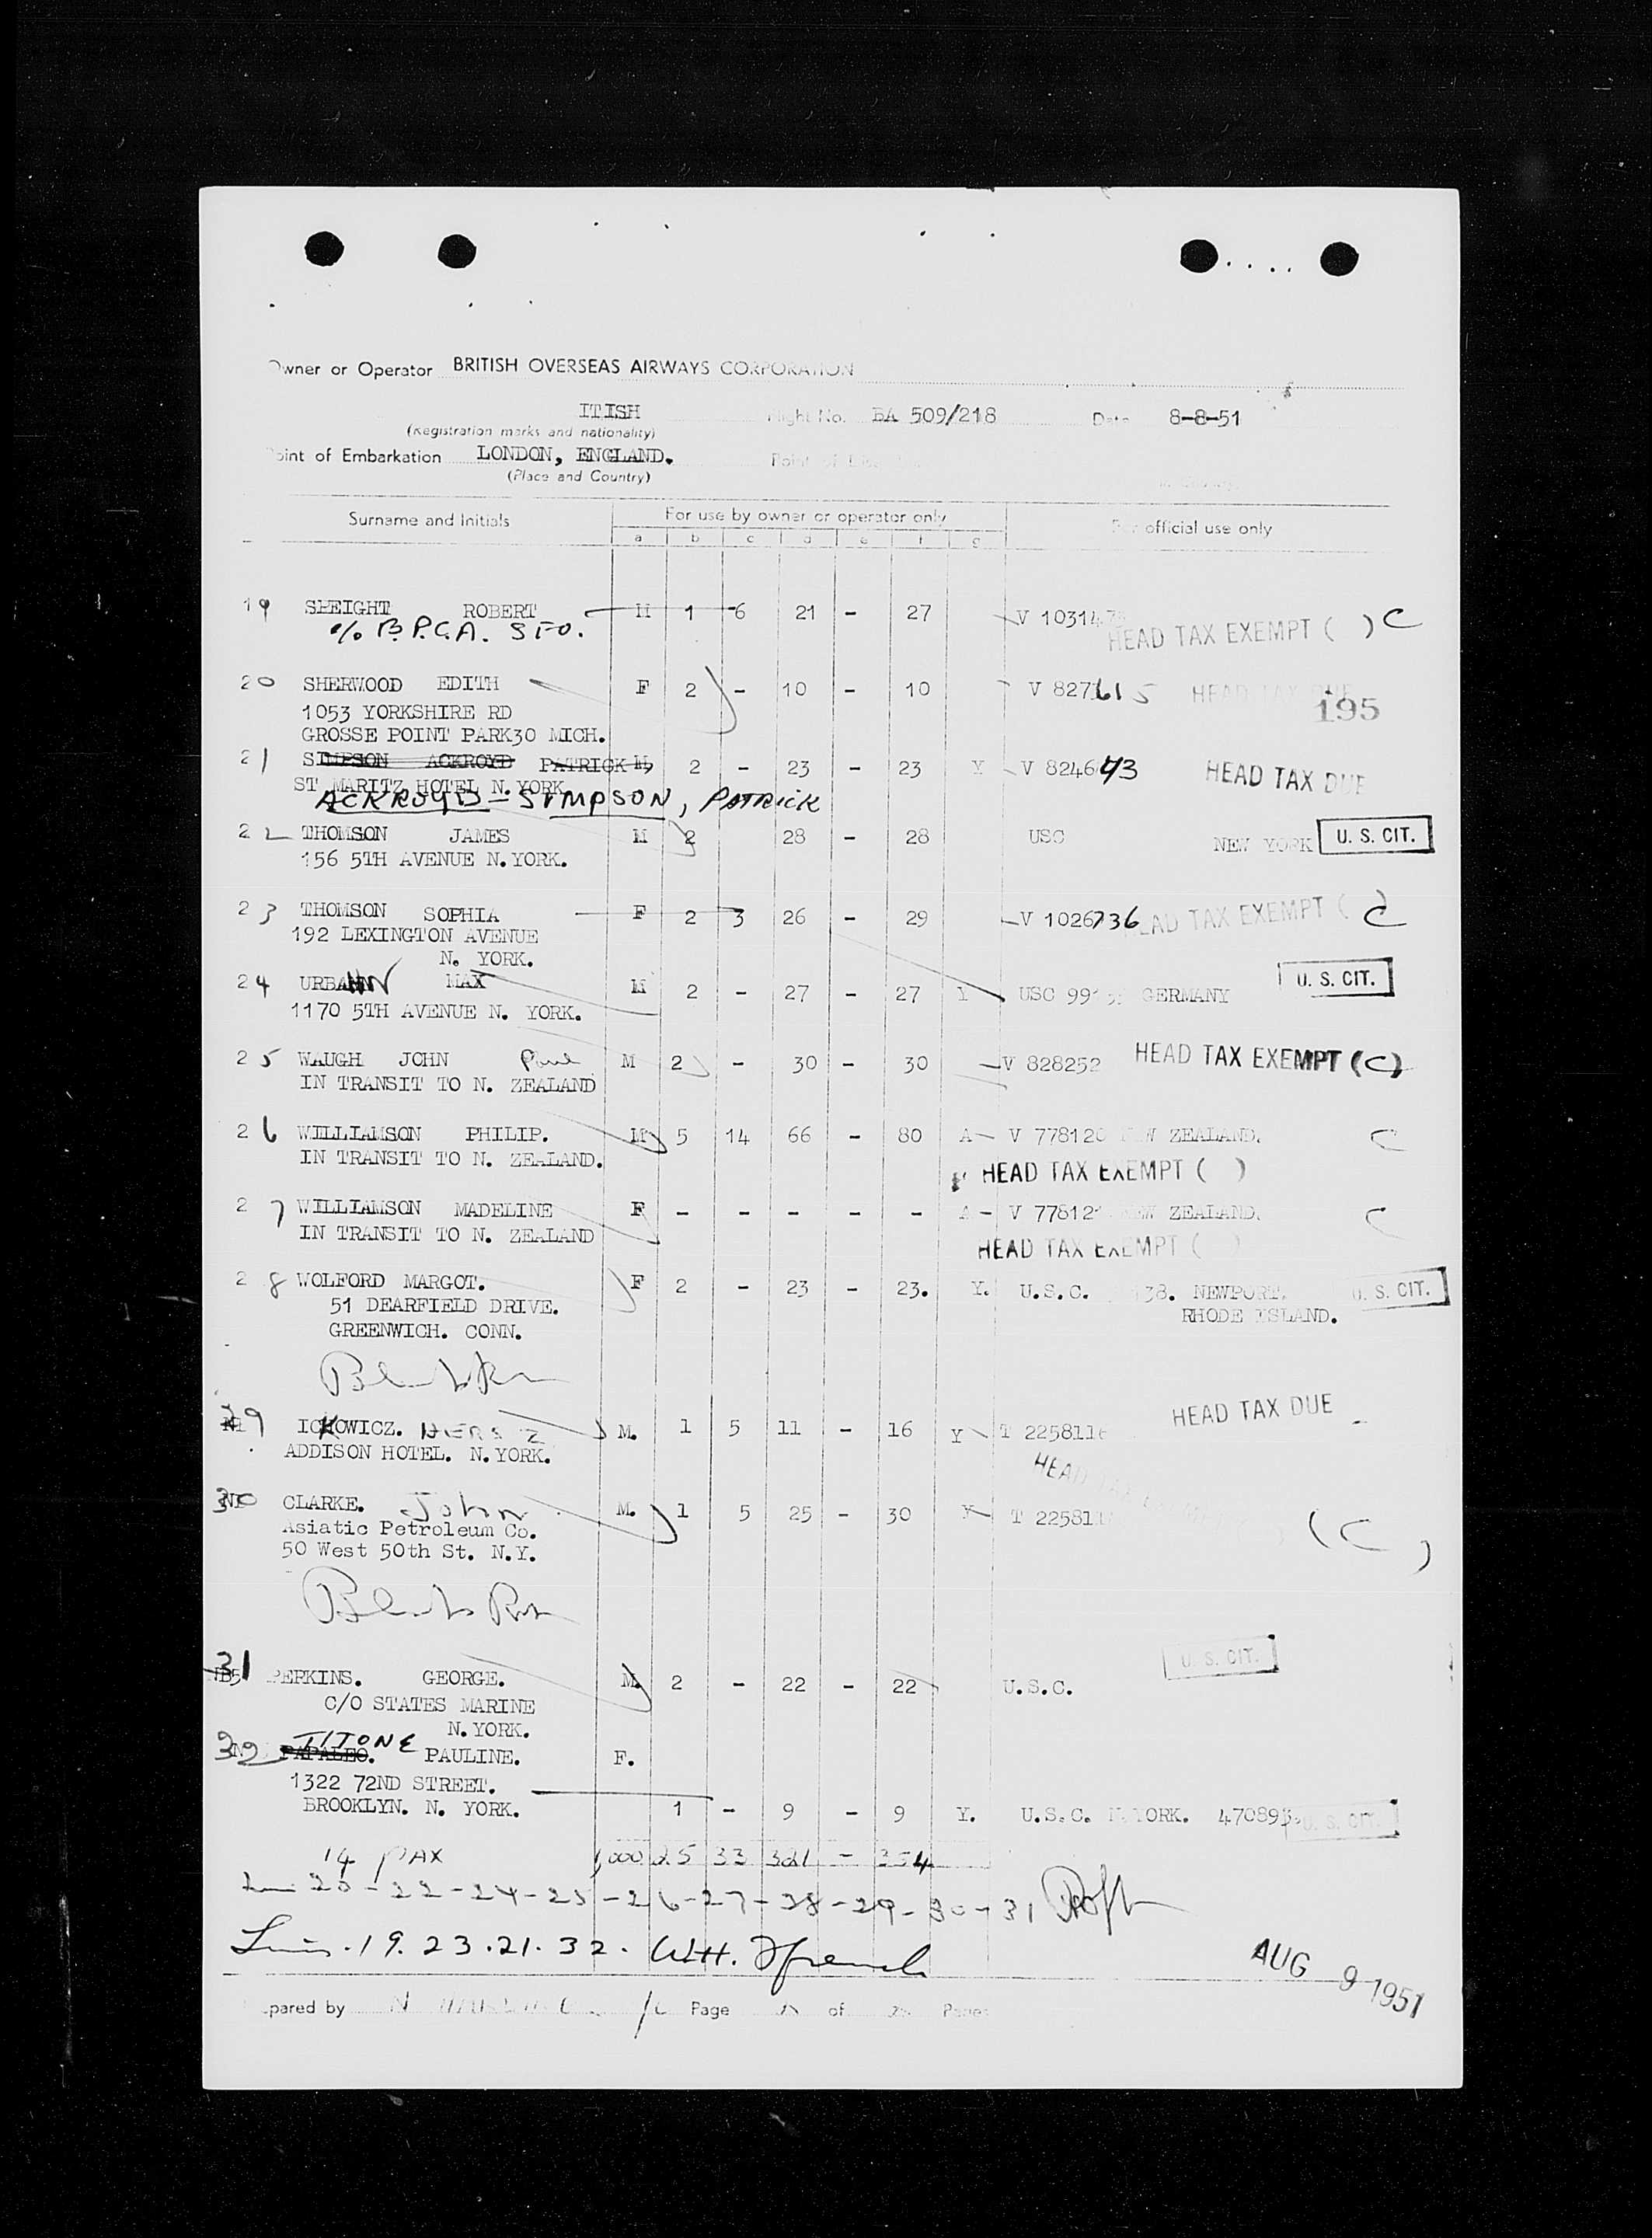 Owner or Operator BRITISH OVERSEAS AIRWAYS CORPORATION
ITISH Flight No. BA 509/218 Date 8-8-51
(Registration marks and nationality)
Point of Embarkation LONDON, ENGLAND.
(Place and Country)
Surname and Initials For use by owner or operator only For official use only
a b c d e f g
19 SPEIGHT ROBERT M 1 6 21 - 27 V 10314
c/o B.P.C.A. SFO. HEAD TAX EXEMPT ( ) C
20 SHERWOOD EDITH F 2 - 10 - 10 V 827615 HEAD TAX DUE
1053 YORKSHIRE RD 195
GROSSE POINT PARK30 MICH.
21 SIMPSON ACKROYD PATRICK M, 2 - 23 - 23 Y V 824643 HEAD TAX DUE
ST MARITZ HOTEL N.YORK
ACKROYD - SIMPSON, PATRICK
22 THOMSON JAMES M 2 28 - 28 USC NEW YORK U. S. CIT.
156 5TH AVENUE N.YORK.
23 THOMSON SOPHIA F 2 3 26 - 29 V 1026736 HEAD TAX EXEMPT ( C )
192 LEXINGTON AVENUE
N. YORK.
24 URBAHN MAX M 2 - 27 - 27 Y USC 99 GERMANY U. S. CIT.
1170 5TH AVENUE N. YORK.
25 WAUGH JOHN M 2 - 30 - 30 V 828252 HEAD TAX EXEMPT (C)
IN TRANSIT TO N. ZEALAND
26 WILLIAMSON PHILIP. M 5 14 66 - 80 A V 778120 NEW ZEALAND. C
IN TRANSIT TO N. ZEALAND.
HEAD TAX EXEMPT ( )
27 WILLIAMSON MADELINE F - - - - - A - V 778121 NEW ZEALAND. C
IN TRANSIT TO N. ZEALAND
HEAD TAX EXEMPT ( )
28 WOLFORD MARGOT. F 2 - 23 - 23. Y. U.S.C. 38. NEWPORT. U. S. CIT.
51 DEARFIELD DRIVE. RHODE ISLAND.
GREENWICH. CONN.
29 ICKOWICZ. HERSZ M. 1 5 11 - 16 Y T 2258116 HEAD TAX DUE
ADDISON HOTEL. N.YORK.
HEAD TAX
30 CLARKE. John M. 1 5 25 - 30 Y T 22581 (C)
Asiatic Petroleum Co.
50 West 50th St. N.Y.
31 PERKINS. GEORGE. M. 2 - 22 - 22 U.S.C. U. S. CIT.
C/O STATES MARINE
N.YORK.
32 TITONE
PAPALEO. PAULINE. F.
1322 72ND STREET.
BROOKLYN. N. YORK. 1 - 9 - 9 Y. U.S.C. N.YORK. 470895. U. S. CIT.
14 PAX 1,000 25 33 321 - 354
20 - 22 - 24 - 25 - 26 - 27 - 28 - 29 - 30 - 31
19. 23. 21. 32. W.H.
AUG 9 1951
Prepared by Page of Pages